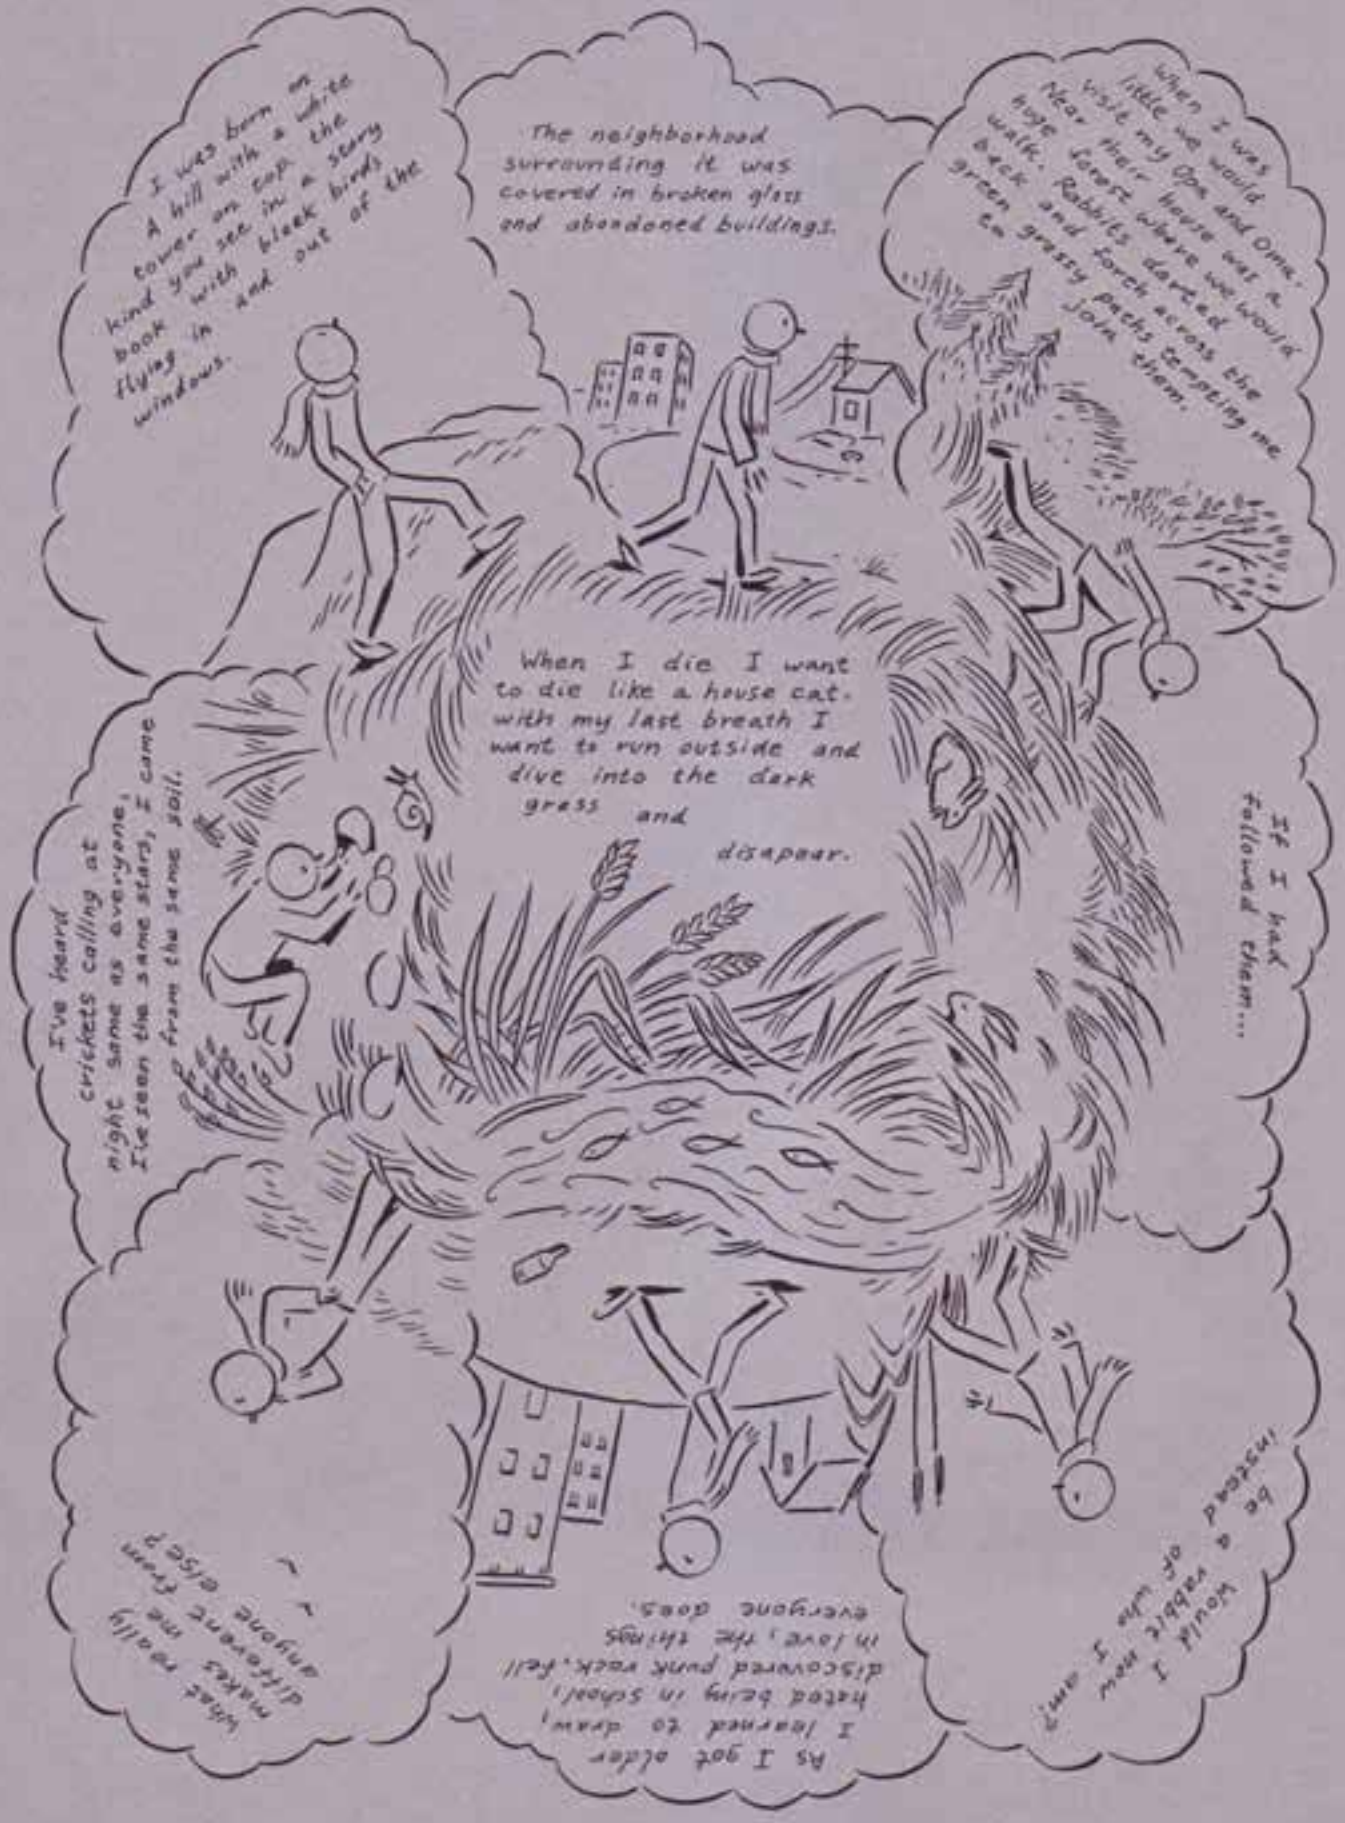 I was born on
A hill with a white
tower on top, the
kind you see in a story
book with black birds
flying in and out of the
windows.
The neighborhood
surrounding it was
covered in broken glass
and abandoned buildings.
When I was
little we would
visit my Opa and Oma.
Near their house was a
huge forest where we would
walk. Rabbits darted
back and forth across the
green grassy paths tempting me
to join them.
If I had
followed them...
Would I
be a rabbit now
instead of who I am?
As I got older
I learned to draw,
hated being in school,
discovered punk rock, fell
in love, the things
everyone does.
What really
makes me
different from
anyone else?
I've heard
crickets calling at
night same as everyone,
I've seen the same stars, I came
from the same soil.
When I die I want
to die like a house cat.
with my last breath I
want to run outside and
dive into the dark
grass and
disapear.